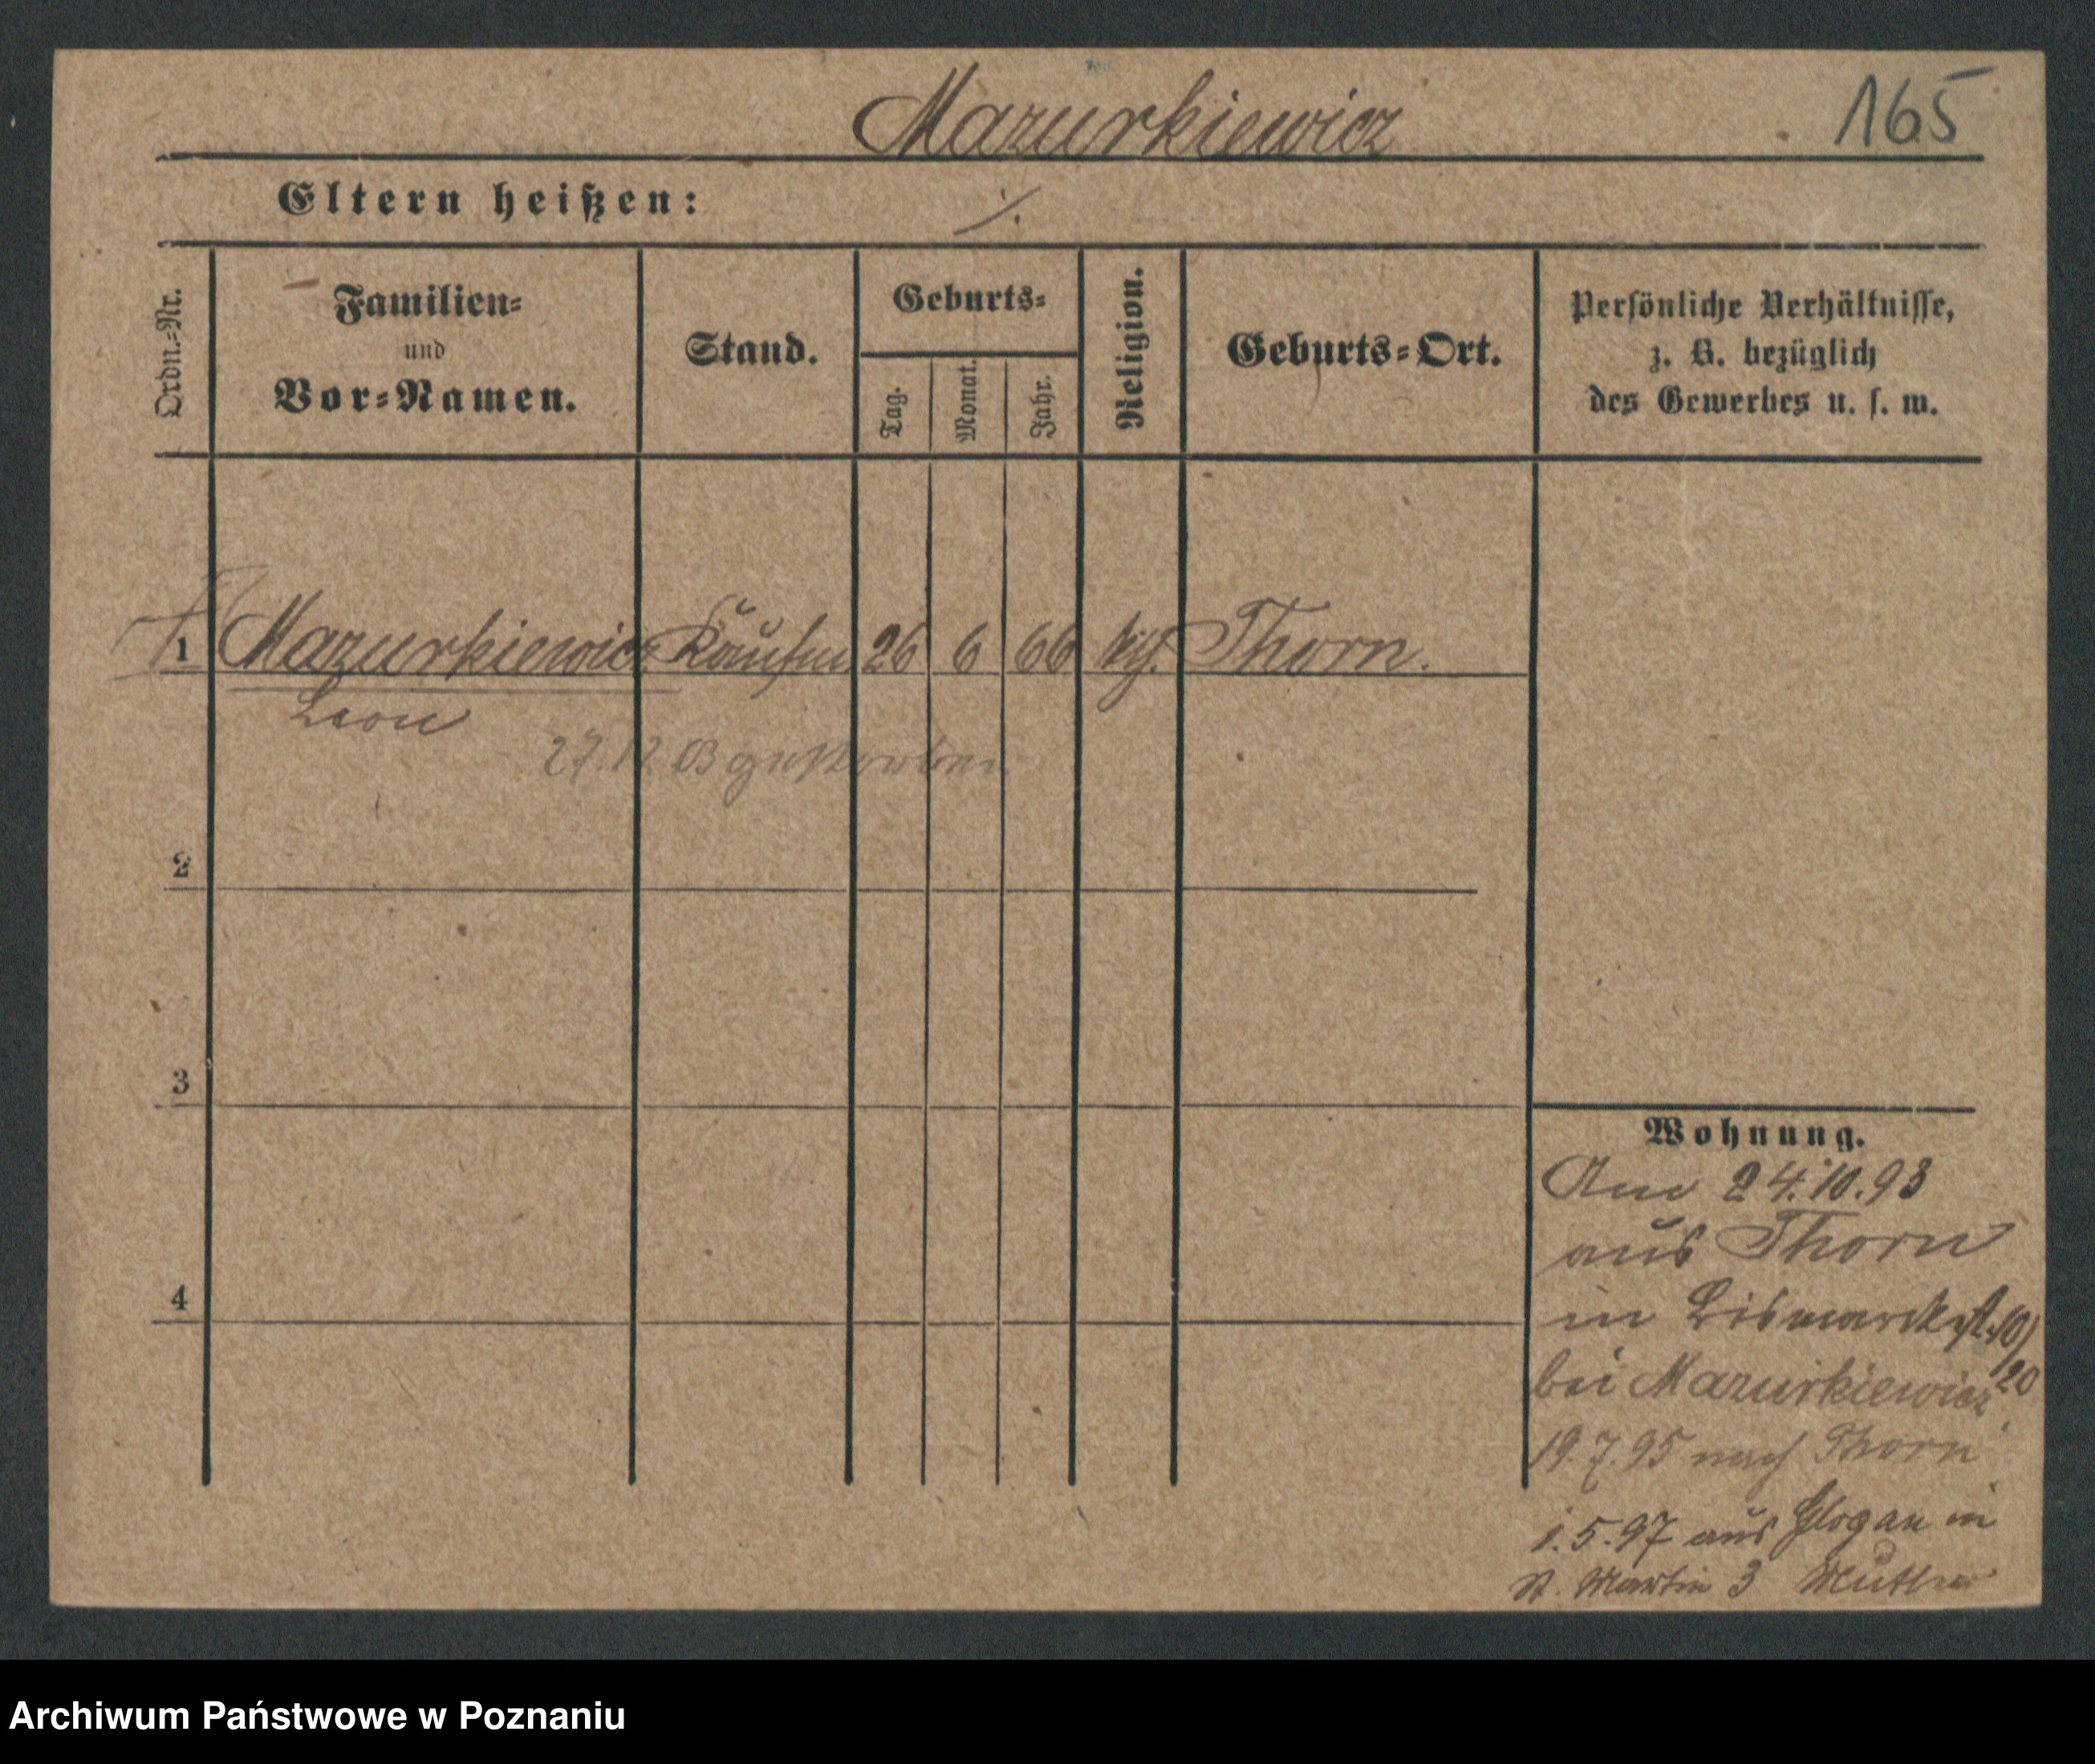 Mazurkiewicz
165
Eltern heißen: ·/.
Ordn.=Nr.
Familien=
und
Vor=Namen.
Stand.
Geburts=
Tag.
Monat.
Jahr.
Religion.
Geburts=Ort.
Persönliche Verhältnisse,
z. B. bezüglich
des Gewerbes u. s. w.
1 Mazurkiewicz Kaufm. 26 6 66 kth. Thorn.
Leon
27.12 03 gestorben
2
3
4
Wohnung.
Am 24.10.93
aus Thorn
in Bismarckst. 10/
20
bei Mazurkiewicz
19.7.95 nach Thorn
1.5.97 aus Glogau in
St. Martin 3
Archiwum Państwowe w Poznaniu